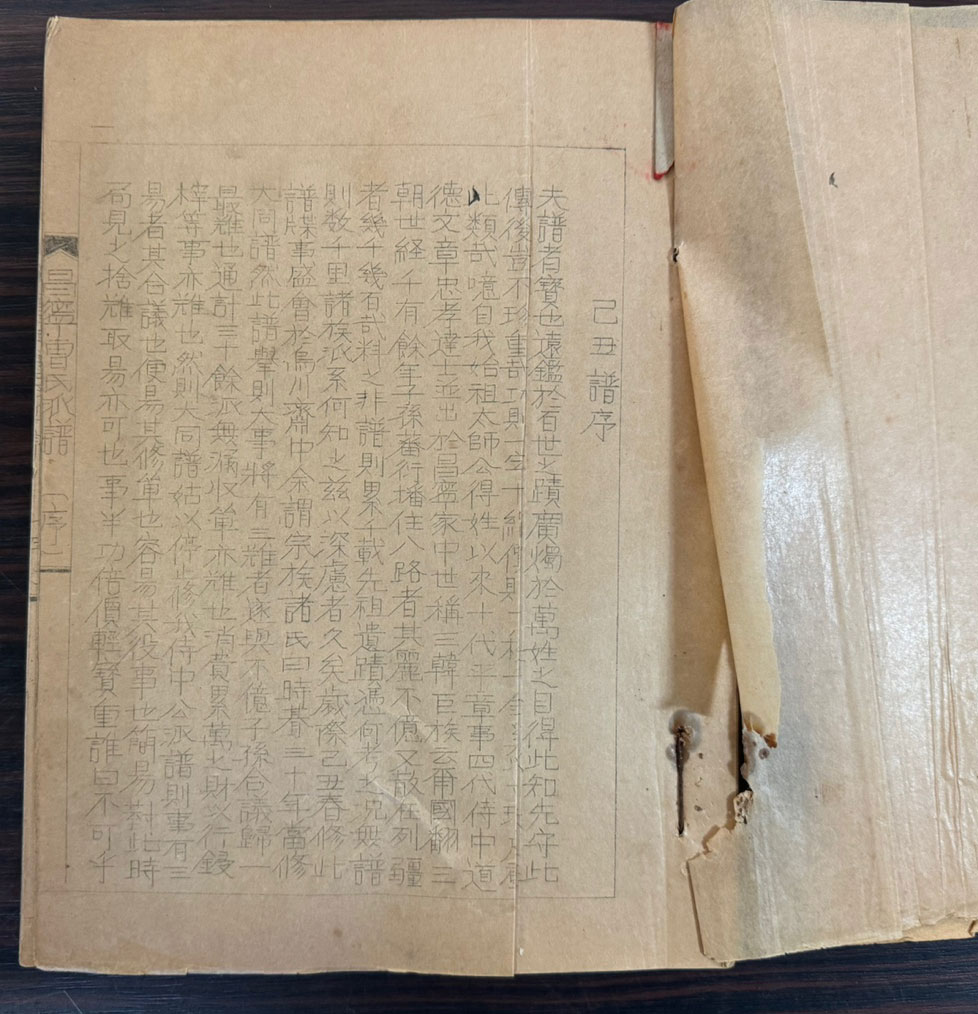 己丑譜序
夫譜者寶也遠鑑於百世之蹟廣燭於萬姓之目得此知先守此
傳後豈不珍重哉功則一字十
此類哉噫自我始祖太師公得姓以來十代平章事四代侍中道
德文章忠孝達士並出於昌寧家中世稱三韓巨族云爾國翻三
朝世経千有餘年子孫蕃衍播住八路者其麗不億又散在列疆
者幾千幾百哉料之非譜則累千載先祖遺蹟憑何考之况無譜
則数千里諸族派系何知之兹以深慮者久矣歲祭己丑春修此
譜牒事盛會於烏川齋中余謂宗族諸氏曰時暮三十年當修
大同譜然此譜擧則大事將有三難者遂與不億子孫合議歸一
最難也通計三十餘派無漏收單亦難也消費累萬之財以行鋟
梓等事亦難也然則大同譜姑以停止修我侍中公派譜則事有三
易者其合議也便易其修單也容易其役事也簡易対此時
局見之捨難取易亦可也事半功倍價輕寶重誰曰不可乎
昌寧曹氏派譜 序 一